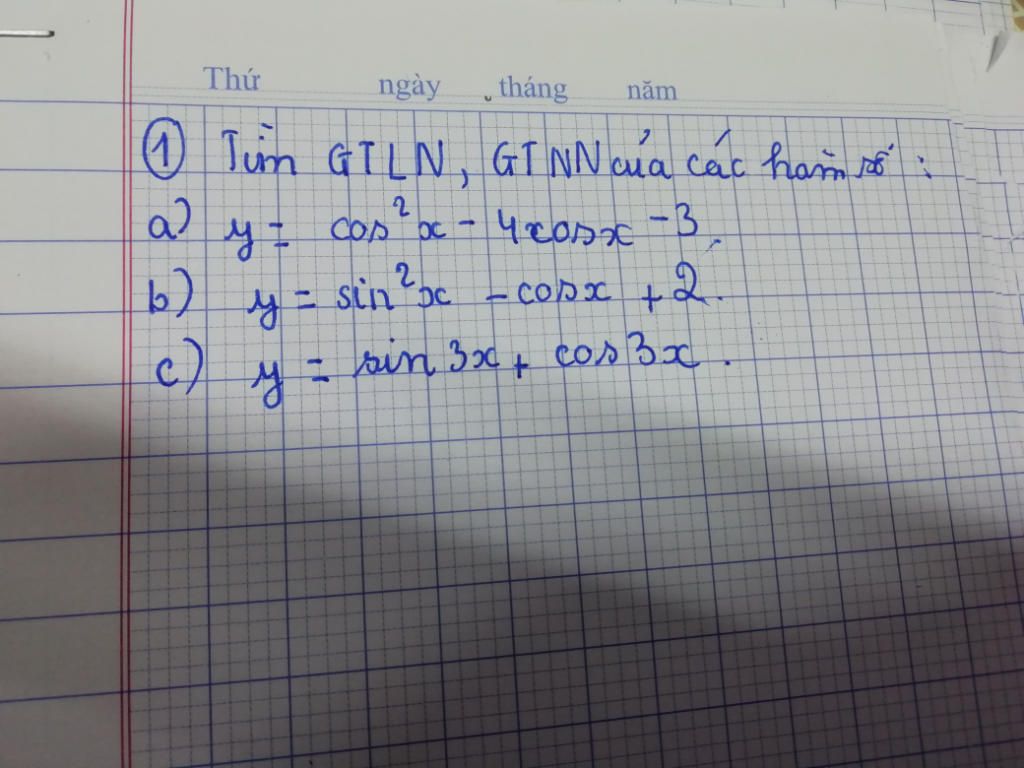 Thứ ngày tháng năm
① Tìm GTLN, GTNN của các hàm số :
a) y = cos²x - 4cosx - 3.
b) y = sin²x - cosx + 2.
c) y = sin3x + cos3x.